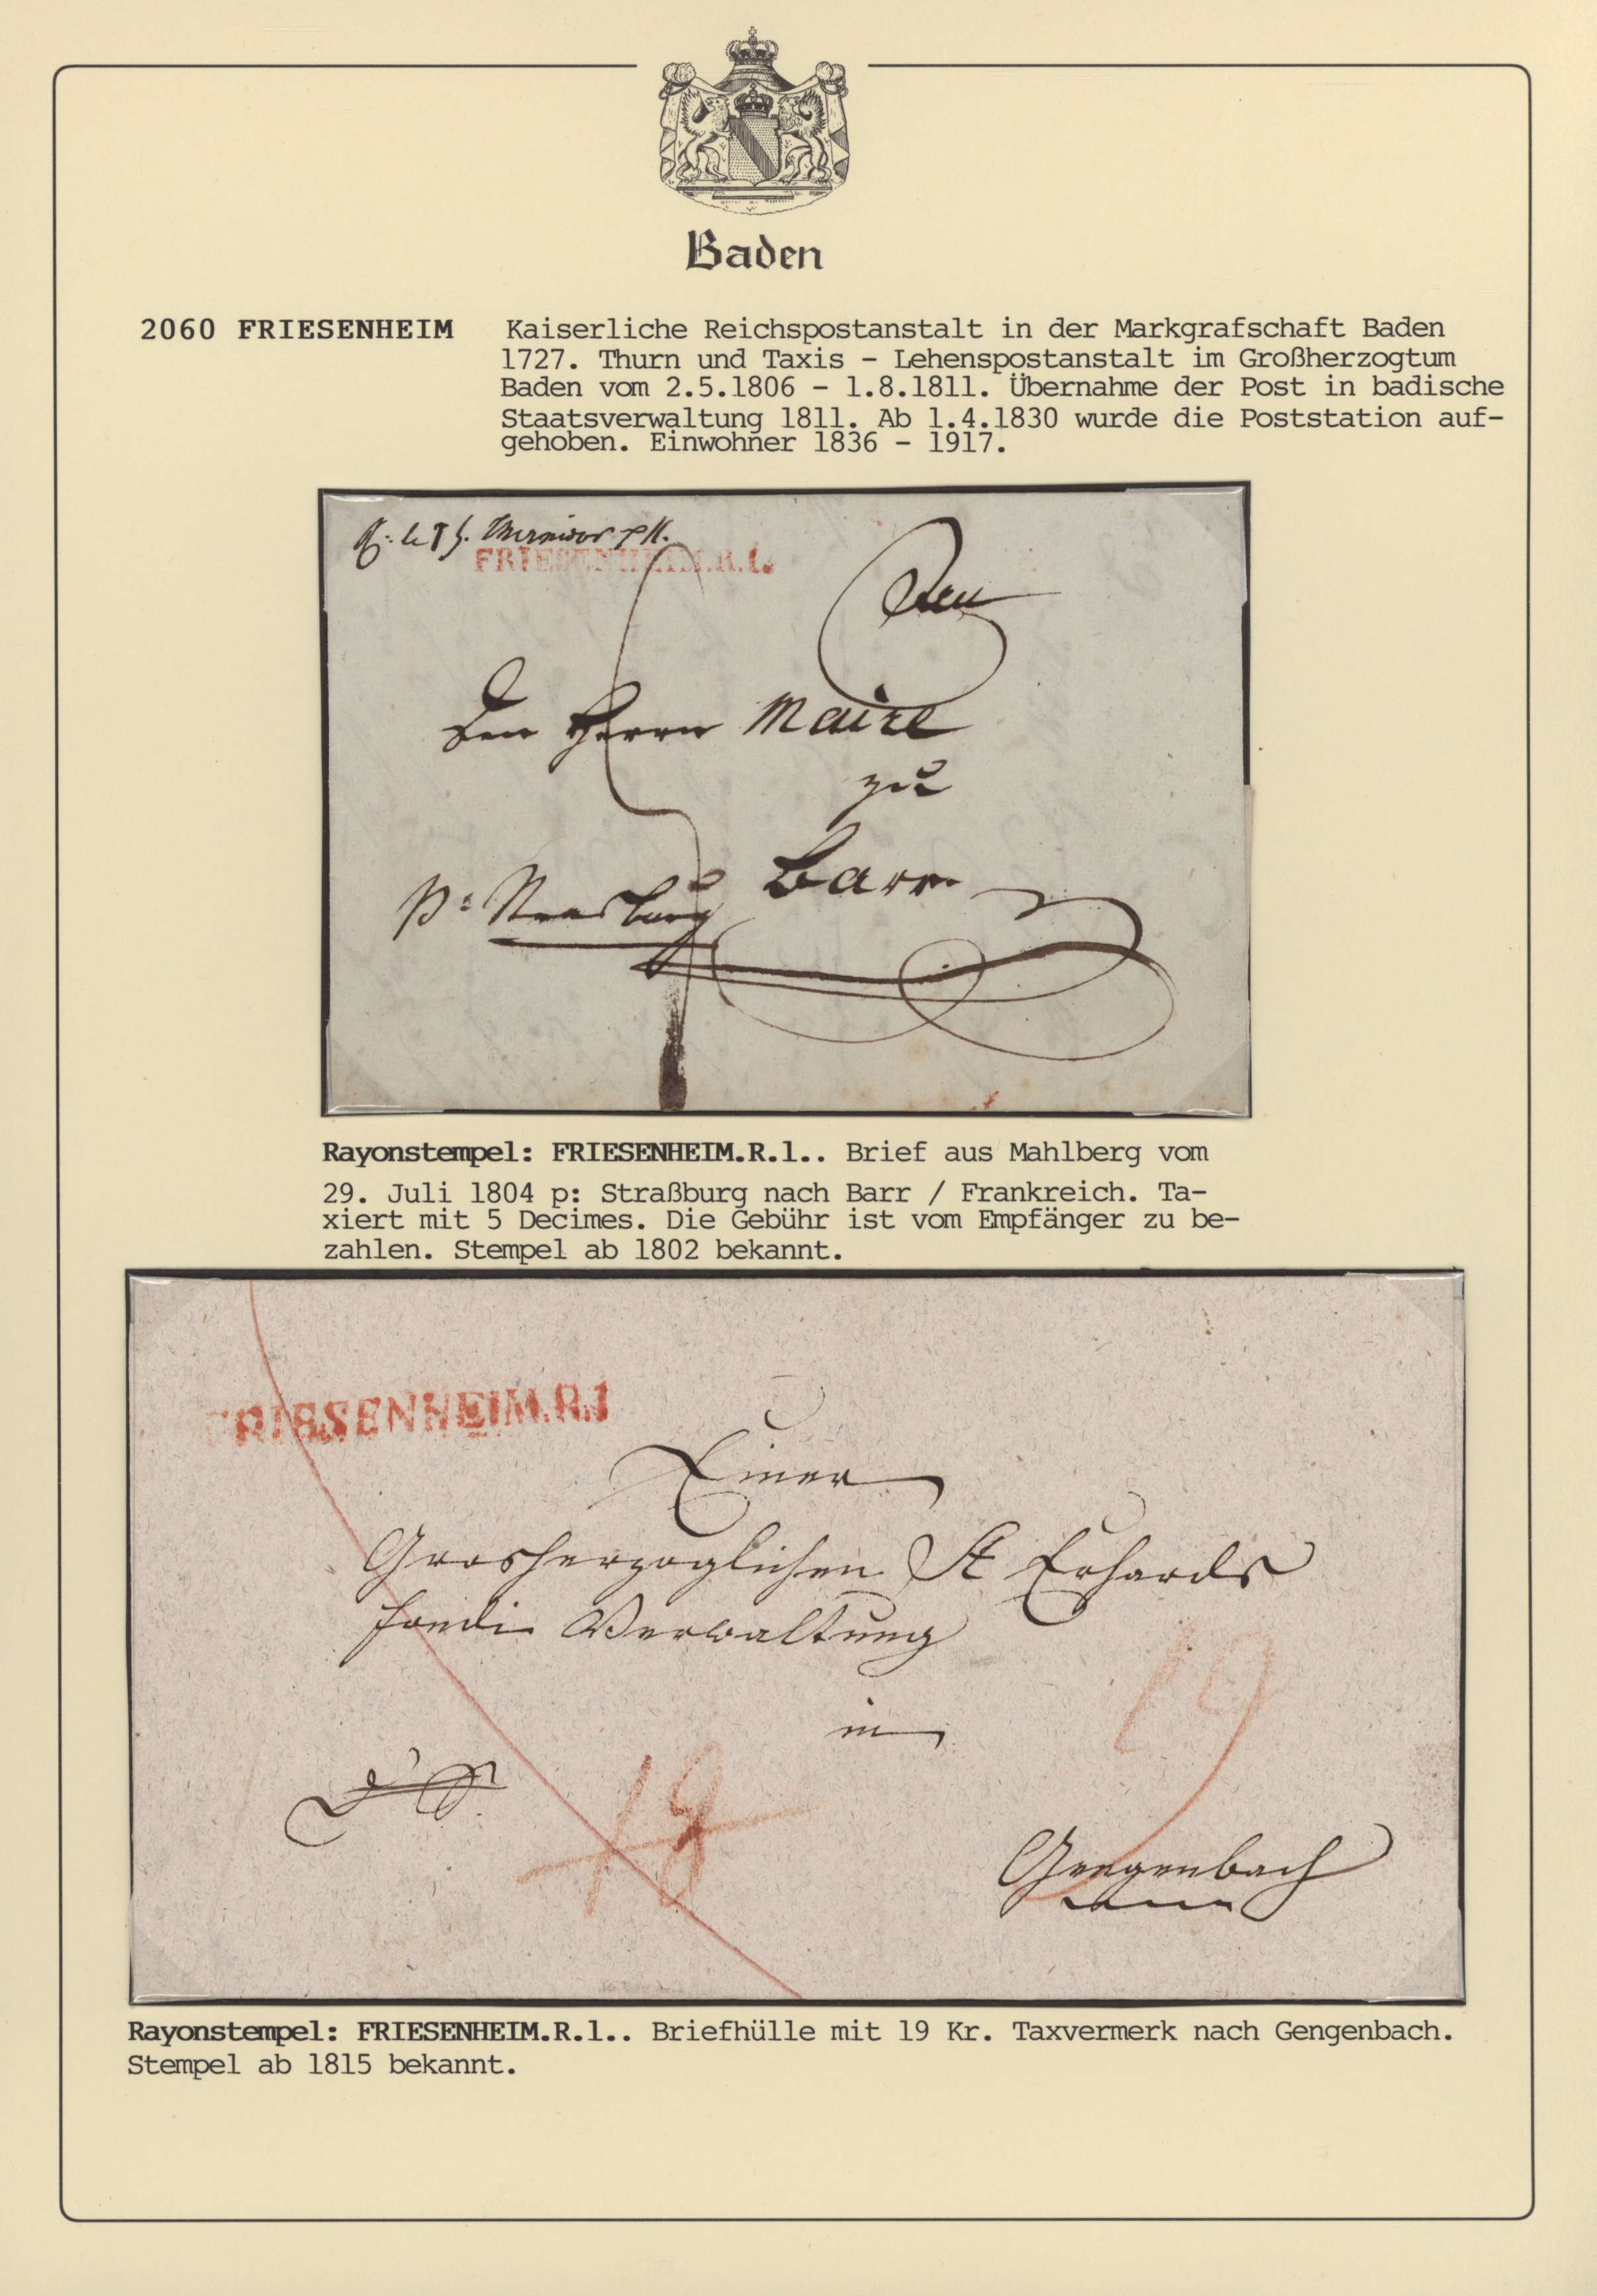 Baden
2060 FRIESENHEIM Kaiserliche Reichspostanstalt in der Markgrafschaft Baden
1727. Thurn und Taxis - Lehenspostanstalt im Großherzogtum
Baden vom 2.5.1806 - 1.8.1811. Übernahme der Post in badische
Staatsverwaltung 1811. Ab 1.4.1830 wurde die Poststation auf-
gehoben. Einwohner 1836 - 1917.
Thermidor
FRIESENHEIM.R.1.
Den Herrn Maire
zu
Barr
p: Strasburg
Rayonstempel: FRIESENHEIM.R.1.. Brief aus Mahlberg vom
29. Juli 1804 p: Straßburg nach Barr / Frankreich. Ta-
xiert mit 5 Decimes. Die Gebühr ist vom Empfänger zu be-
zahlen. Stempel ab 1802 bekannt.
FRIESENHEIM.R.1
Einer
Grosherzoglichen St Erhards
fondi Verwaltung
in
19
18
Gengenbach
Rayonstempel: FRIESENHEIM.R.1.. Briefhülle mit 19 Kr. Taxvermerk nach Gengenbach.
Stempel ab 1815 bekannt.